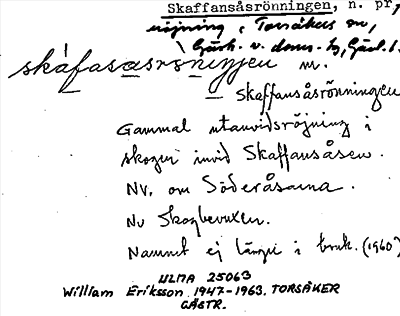 Skaffansåsrönningen, n. pr,
röjning, Torsåkers sn,
Gästr. v. doms-h, Gävl. l.
skáfasasrò̀niŋen m.
Skaffansåsrönningen
Gammal utanvidsröjning i
skogen invid Skaffansåsen.
NV. om Söderåsarna.
Nu skogbevuxen.
Namnet ej längre i bruk. (1960)
ULMA 25063
William Eriksson 1947-1963. TORSÅKER
GÄSTR.